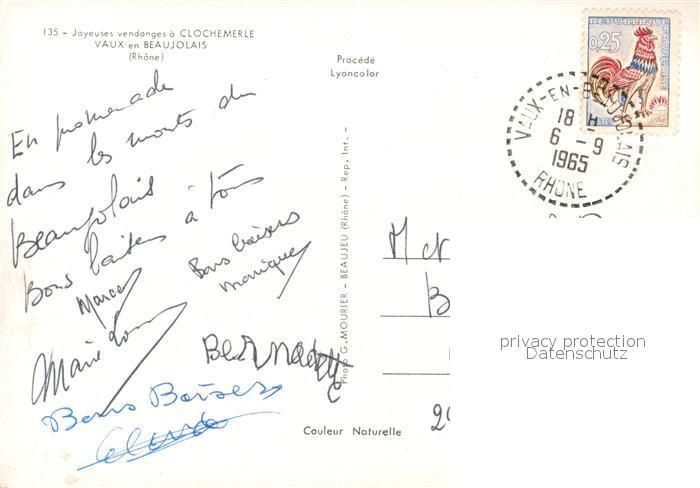 135 - Joyeuses vendanges à CLOCHEMERLE
VAUX en BEAUJOLAIS
(Rhône)
Procédé
Lyoncolor
REPUBLIQUE FRANÇAISE
0,25
VAUX-EN-BEAUJOLAIS
18 H
6 - 9
1965
RHONE
En promenade
dans les monts du
Beaujolais
Bons baisers à tous
Marcel
Bons baisers
Monique
Marie Lou
Bernadette
Bons Baisers
Photo G. MOURIER - BEAUJEU (Rhône) - Rep. Int. -
M et
B
2
Couleur Naturelle
privacy protection
Datenschutz